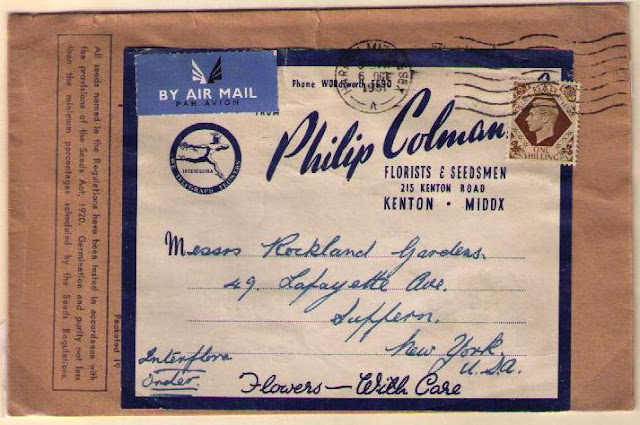 All seeds named in the Regulations have been tested in accordance with
the provisions of the Seeds Act, 1920. Germination and purity not less
than the minimum percentages scheduled by the Seeds Regulations.
Packeted 19
BY AIR MAIL
PAR AVION
Phone WORdsworth
FROM
INTERFLORA
Philip Colman
FLORISTS & SEEDSMEN
215 KENTON ROAD
KENTON · MIDDX
ONE
SHILLING
A
Messrs Rockland Gardens.
49, Lafayette Ave.
Suffern.
New York.
U.S.A.
Interflora
Order
Flowers—With Care